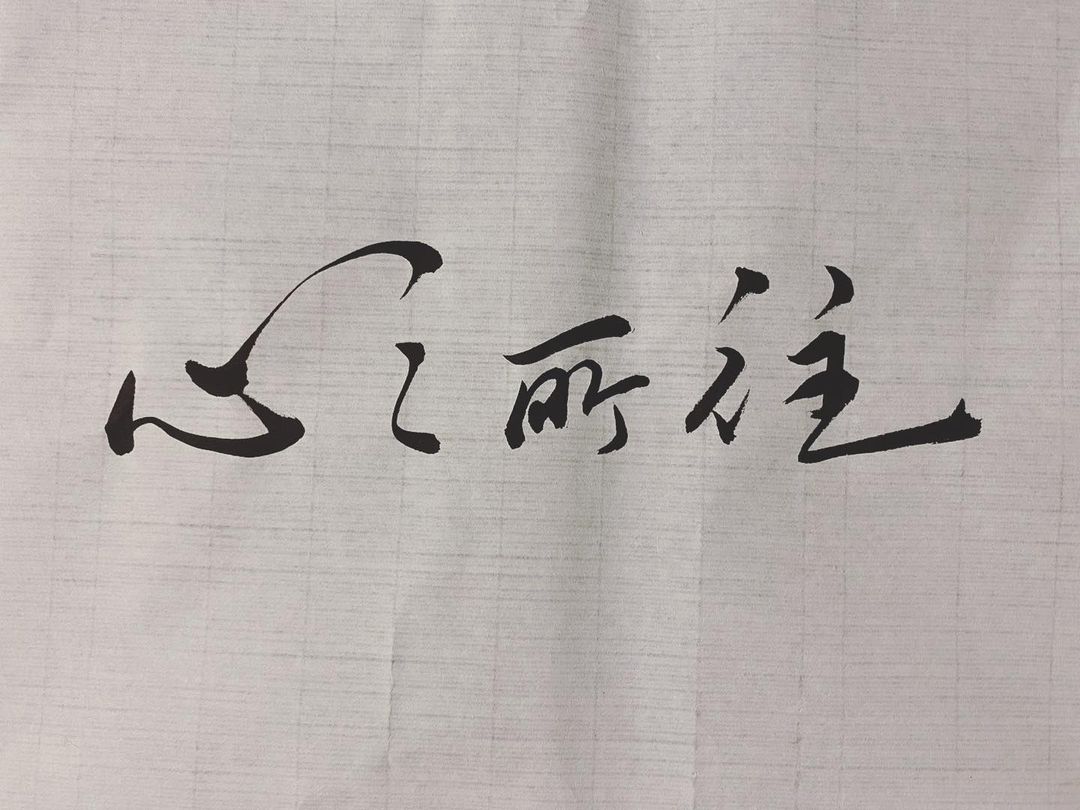 心之所往